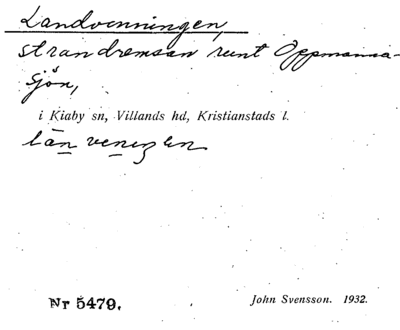 Landvinningen,
strandremsan runt Oppmanna-
sjön,
i Kiaby sn, Villands hd, Kristianstads l.
Nr 5479.
John Svensson. 1932.